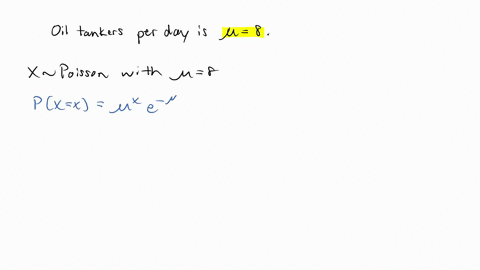 Oil tankers per day is μ = 8.
X ~ Poisson with μ = 8
P(X=x) = μ^x e^-μ